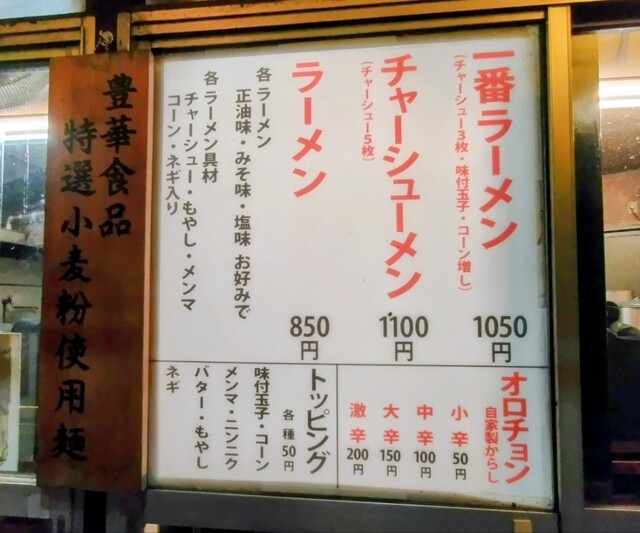 一番ラーメン
(チャーシュー3枚・味付玉子・コーン増し)
1050円
チャーシューメン
(チャーシュー5枚)
1100円
ラーメン
850円
各ラーメン
正油味・みそ味・塩味 お好みで
各ラーメン具材
チャーシュー・もやし・メンマ
コーン・ネギ入り
オロチョン
自家製からし
小辛 50円
中辛 100円
大辛 150円
激辛 200円
トッピング
各種50円
味付玉子・コーン
メンマ・ニンニク
バター・もやし
ネギ
豊華食品
特選小麦粉使用麺